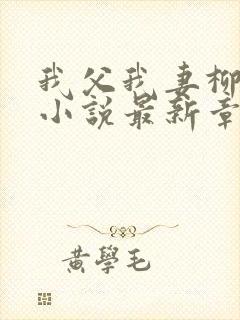 我父我妻柳
小說最新章
黃學毛